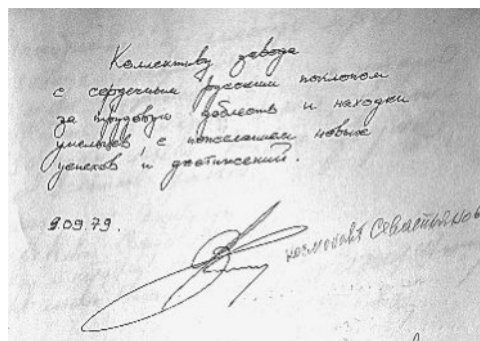 Коллективу завода
с сердечным русским поклоном
за трудовую доблесть и находки
умельцев с пожеланием новых
успехов и достижений.
9.09.79.
космонавт Севастьянов